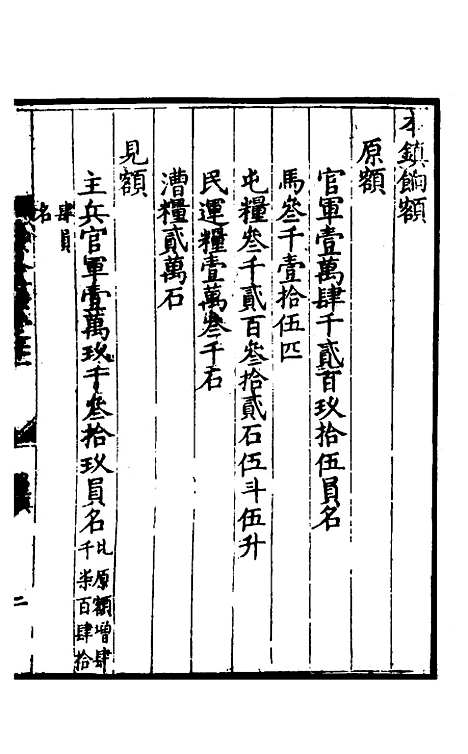 本鎮餉額
原額
官軍壹萬肆千貳百玖拾伍員名
馬叄千壹拾伍匹
屯糧叄千貳百叄拾貳石伍斗伍升
民運糧壹萬叄千石
漕糧貳萬石
見額
主兵官軍壹萬玖千叄拾玖員名比原額增肆千柒百肆拾
肆員名
二